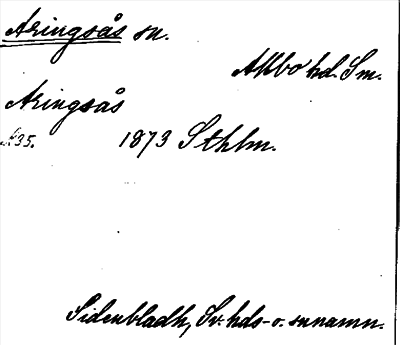 Aringsås sn.
Allbo hd. Sm.
Aringsås
35. 1873 Sthlm.
Sidenbladh, Sv. hds- o. snnamn.